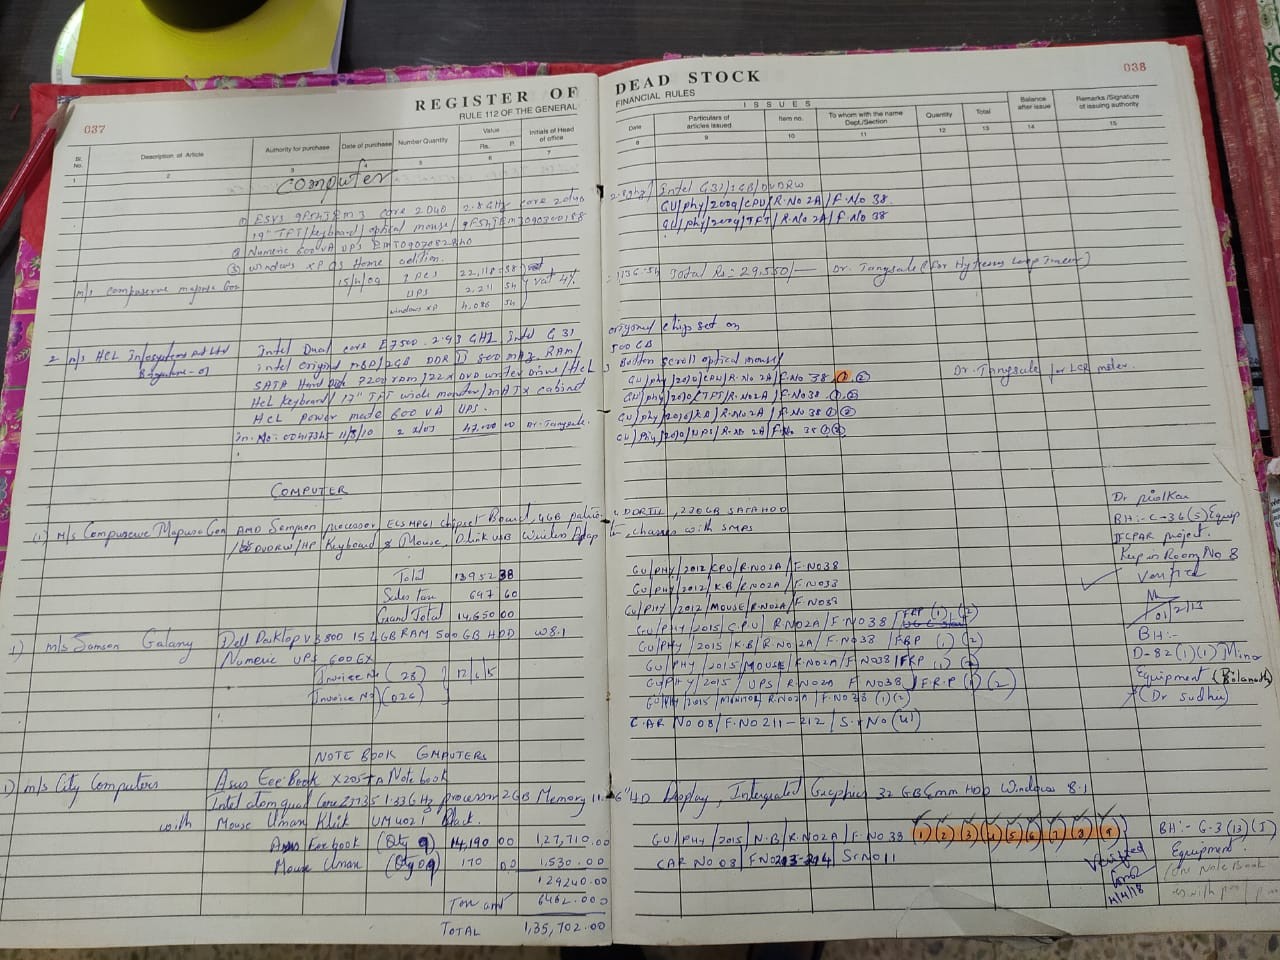 037
REGISTER OF
RULE 112 OF THE GENERAL
Sl. No.
Description of Article
Authority for purchase
Date of purchase
Number Quantity
Value
Rs.
P.
Initials of Head of office
1
2
3
4
5
6
7
Computer
① ESYS 9F5H3 core 2 DUO 2.8 GHz core 2 duo
19" TFT/Keyboard/optical mouse/
② Numeric 600 VA UPS
③ windows XP Home edition.
M/s Compuserve Mapusa Goa 15/4/09 1 PCS 22,118=38
UPS 2,211 54 vat 4%
windows XP 4,086 54
2 M/s HCL Infosystems Pvt Ltd Intel Dual core E7500 2.93 GHz Intel G31
Bangalore-01 intel original MBD/2GB DDR II 800 MHz RAM/
SATA Hard Disk 7200 rpm/22x DVD writer Drive/HCL
HCL Keyboard/17" TFT wide monitor/MATX cabinet
HCL power mate 600 VA UPS.
in. No: 00417345 11/8/10 2 nos 47,000 00 Dr. Tangsale.
COMPUTER
(1) M/s Compuserve Mapusa Goa AMD Sempron processor, ECS MPG1 Chipset Board, 4GB
DVDRW/HP Keyboard & Mouse, Dlink USB Wireless Adap
Total 13952 38
Sales tax 697 60
Grand Total 14,650 00
1) M/s Samson Galaxy Dell Desktop V3800 RAM 500 GB HDD W8.1
Numeric UPS 600EX
Invoice No (28) 12/6/15
Invoice No (026)
NOTE BOOK COMPUTERS
1) M/s City Computers Asus Eee Book X205TA Notebook
Intel atom quad Core Z3735 1.33GHz processor 2GB Memory 11.
with Mouse Uman Klik UM4021 Black.
Asus Eee book (Qty 9) 14,190 00 1,27,710.00
Mouse Uman (Qty 09) 170 00 1,530.00
129240.00
Tax amt 6462.00
TOTAL 1,35,702.00
038
DEAD STOCK
FINANCIAL RULES
ISSUES
Date
Particulars of articles issued
Item no.
To whom with the name Dept./Section
Quantity
Total
Balance after issue
Remarks /Signature of issuing authority
8
9
10
11
12
13
14
15
2.8 ghz/ Intel G31/2GB/DVDRW
GU/phy/2009/CPU/R.No 2A/F.No 38
GU/phy/2009/TFT/R.No 2A/F.No 38
Total Rs = 29,550/— Dr. Tangsale (for Hysteresis Loop Tracer)
original chipset on
500 GB
3 Button scroll optical mouse/
GU/phy/2010/CPU/R.No 2A/F.No 38 ①,② Dr. Tangsale for LCR meter.
GU/phy/2010/TFT/R.No2A/F.No38 ①,②
GU/phy/2010/KB/R.No2A/F.No38 ①②
GU/Phy/2010/UPS/R.No 2A/F.No 38 ①②
DDR III, 220GB SATA HDD
chasses with SMPS
GU/PHY/2012/CPU/R.NO2A/F.NO38
GU/PHY/2012/K.B/R.NO2A/F.NO38
GU/PHY/2012/MOUSE/R.NO2A/F.NO38
GU/PHY/2015/C.P.U/R.NO2A/F.NO38/ FRP (1), (2)
GU/PHY/2015/K.B/R.NO2A/F.NO38/FRP (1) (2)
GU/PHY/2015/MOUSE/R.NO2A/F.NO38/FRP (1) (2)
GU/PHY/2015/UPS/R.NO2A F.NO38/F.R.P (1) (2)
GU/PHY/2015/MONITOR/R.NO2A/F.NO38 (1) (2)
C.AR No 08/F.NO 211-212/S.r No (41)
Dr Priolkar
BH:- C-36(5) Equip
IFCPAR project.
Keep in Room No 8
Verified
BH:-
D-82(1)(1) Minor
Equipment
(Dr Sudhir)
6" HD Display, Intergrated Graphics 32 GB Emm HDD Windows 8.1
GU/PHY/2015/N.B/R.NO2A/F.NO 38 (1) (2) (3) (4) (5) (6) (7) (8) (9)
CAR No 08/F.NO 213-214/Sr.No 11
Verified
4/4/18
BH:- G-3(13)(J)
Equipment.